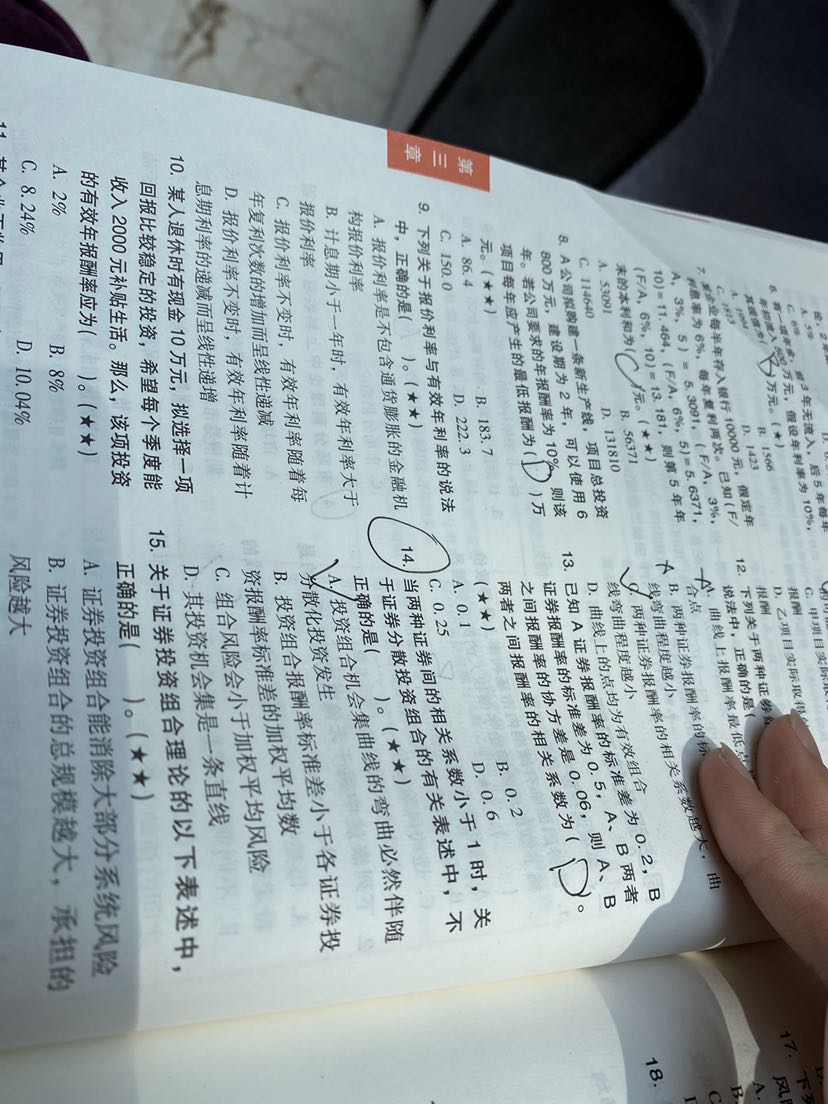 第三章
6. 有一项年金，前3年无流入，后5年每年
年初流入
万元，假设年利率为10%，
B. 1566
D. 1423
C. 1813
7. 某企业每半年存入银行10000元，假定年
利息率为6%，每年复利两次。已知（F/
A，3%，5）=5.3091，（F/A，3%，
10）=11.464，（F/A，6%，5）=5.6371，
（F/A，6%，10）=13.181，则第5年年
末的本利和为（C）元。（★★）
A. 53091
B. 56371
C. 114640
D. 131810
8. A公司拟购建一条新生产线，项目总投资
800万元，建设期为2年，可以使用6
年。若公司要求的年报酬率为10%，则该
项目每年应产生的最低报酬为（D）万
元。（★★）
A. 86.4
B. 183.7
C. 150.0
D. 222.3
9. 下列关于报价利率与有效年利率的说法
中，正确的是（ ）。（★★）
A. 报价利率是不包含通货膨胀的金融机
构报价利率
B. 计息期小于一年时，有效年利率大于
报价利率
C. 报价利率不变时，有效年利率随着每
年复利次数的增加而呈线性递减
D. 报价利率不变时，有效年利率随着计
息期利率的递减而呈线性递增
10. 某人退休时有现金10万元，拟选择一项
回报比较稳定的投资，希望每个季度能
收入2000元补贴生活。那么，该项投资
的有效年报酬率应为（ ）。（★★）
A. 2%
B. 8%
C. 8.24%
D. 10.04%
报酬
D. 乙项目实际取得
报酬
12. 下列关于两种证券
说法中，正确的是（
A. 曲线上报酬率最低点
合点
B. 两种证券报酬率的标
线弯曲程度越小
C. 两种证券报酬率的相关系数越大，曲
线弯曲程度越小
D. 曲线上的点均为有效组合
13. 已知A证券报酬率的标准差为0.2，B
证券报酬率的标准差为0.5，A、B两者
之间报酬率的协方差是0.06，则A、B
两者之间报酬率的相关系数为（D）。
（★★）
A. 0.1
B. 0.2
C. 0.25
D. 0.6
14. 当两种证券间的相关系数小于1时，关
于证券分散投资组合的有关表述中，不
正确的是（ ）。（★★）
A. 投资组合机会集曲线的弯曲必然伴随
分散化投资发生
B. 投资组合报酬率标准差小于各证券投
资报酬率标准差的加权平均数
C. 组合风险会小于加权平均风险
D. 其投资机会集是一条直线
15. 关于证券投资组合理论的以下表述中，
正确的是（ ）。（★★）
A. 证券投资组合能消除大部分系统风险
B. 证券投资组合的总规模越大，承担的
风险越大
17. 下
风
A.
B.
C.
18.